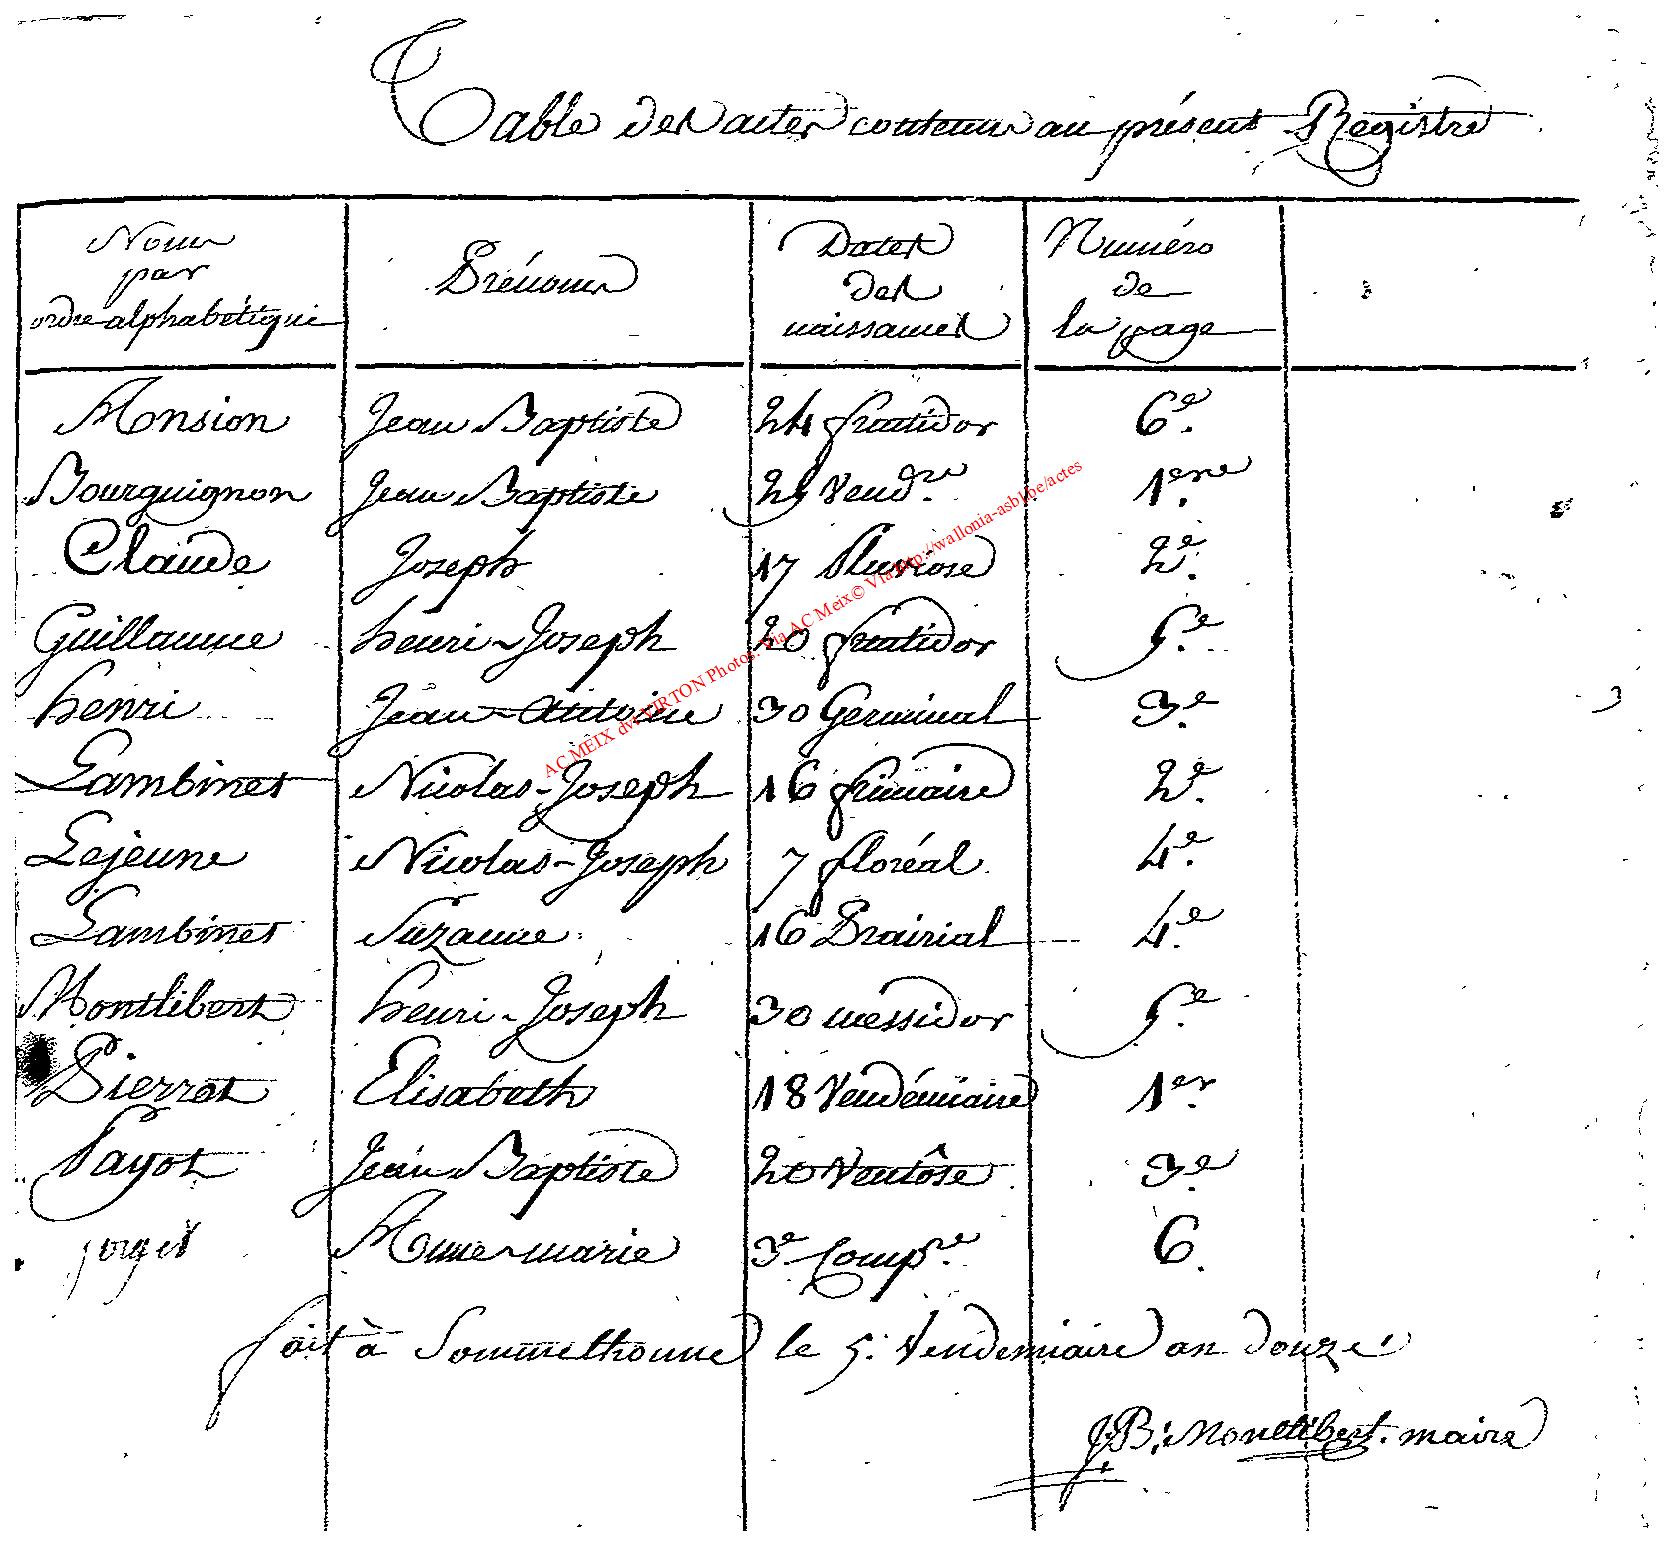 Table des actes contenus au présent Registre
Noms par ordre alphabétique | Prénoms | Dates des naissances | Numéro de la page
Monsion | Jean Baptiste | 24 fructidor | 6e.
Bourguignon | Jean Baptiste | 25 Vend.re | 1ere.
Claude | Joseph | 17 Pluviose | 2e.
Guillaume | henri-Joseph | 20 fructidor | 5e.
henri | Jean-Antoine | 30 Germinal | 3e.
Lambinet | Nicolas-Joseph | 16 frimaire | 2e.
Lejeune | Nicolas-Joseph | 7 floréal | 4e.
Lambinet | Suzanne | 16 Prairial | 4e.
Montlibert | henri-Joseph | 30 messidor | 5e.
Pierret | Elisabeth | 18 Vendémiaire | 1er.
Payot | Jean Baptiste | 20 Ventôse | 3e.
forget | Anne-marie | 3e. Comp.re | 6.
fait à Sommethonne le 5. Vendemiaire an douze
J.B. Montlibert. maire
AC MEIX dvt VIRTON Photos: Via AC Meix© Via http://wallonia-asbl.be/actes